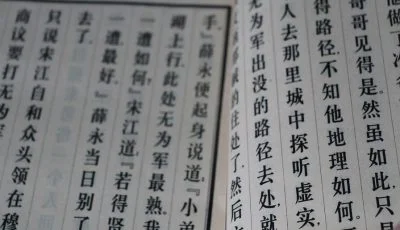 哥哥见得是。然虽如此，只是
得路径，不知他地理如何。
人去那里城中探听虚实，
无为军出没的路径去处，就
贼的住处了，然后
手。』薛永便起身说道：『小弟
湖上行，此处无为军最熟。我
一遭如何？』宋江道：『若得贤
一遭最好。』薛永当日别了
去了。
只说宋江自和众头领在穆
商议要打无为